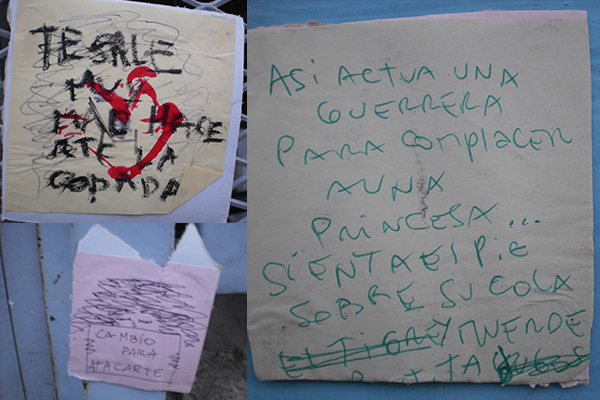 TE SALE
MUY
MAL HACE
ATE LA
COPADA
CAMBIO
PARA
ATACARTE
ASI ACTUA UNA
GUERRERA
PARA COMPLACER
A UNA
PRINCESA...
SIENTA EL PIE
SOBRE SU COLA
EL TIGRE Y MUERDE